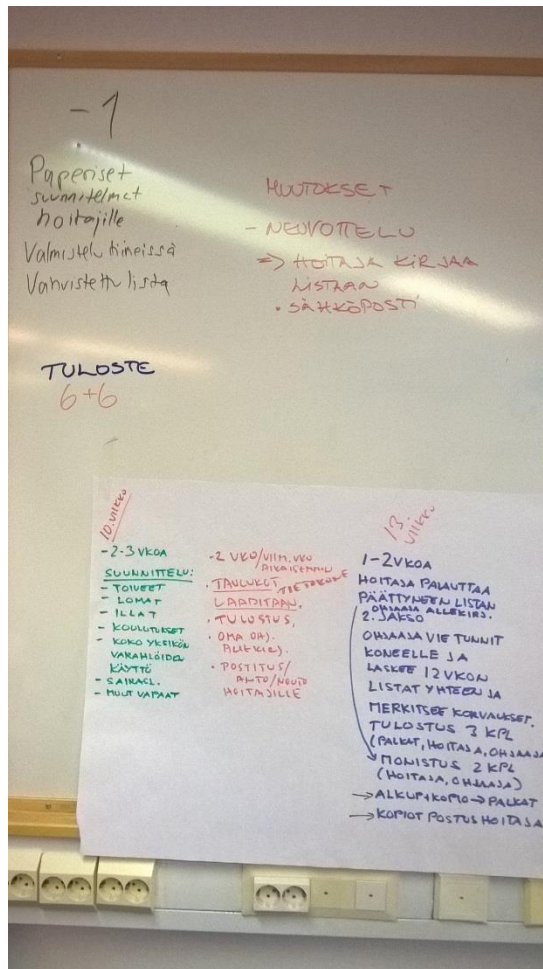 -1
Paperiset
suunnitelmat
hoitajille
Valmistelu tiimeissä
Vahvistettu lista
MUUTOKSET
- NEUVOTTELU
=> HOITAJA KIRJAA
LISTAAN
• SÄHKÖPOSTI
TULOSTE
6+6
10. VIIKKO
-2-3 VKOA
SUUNNITTELU:
- TOIVEET
- LOMAT
- ILLAT
- KOULUTUKSET
- KOKO YKSIKÖN
VARAHLÖIDEN
KÄYTTÖ
- SAIRASL.
- MUUT VAPAAT
-2 VKO/VIIM. VKO
AIKAISEMMIN
• TAULUKOT TIETOKONE
LAADITAAN.
• TULOSTUS,
• OMA OHJ.
ALLEKIRJ.
• POSTITUS/
ANTO/NOUTO
HOITAJILLE
13. VIIKKO
1-2 VKOA
HOITAJA PALAUTTAA
PÄÄTTYNEEN LISTAN
OHJAAJA ALLEKIRJ.
2. JAKSO
OHJAAJA VIE TUNNIT
KONEELLE JA
LASKEE 12 VKON
LISTAT YHTEEN JA
MERKITSEE KORVAUKSET.
TULOSTUS 3 KPL
(PALKAT, HOITAJA, OHJAAJA
MONISTUS 2 KPL
(HOITAJA, OHJAAJA)
→ ALKUP+KOPIO → PALKAT
→ KOPIOT POSTUS HOITAJA